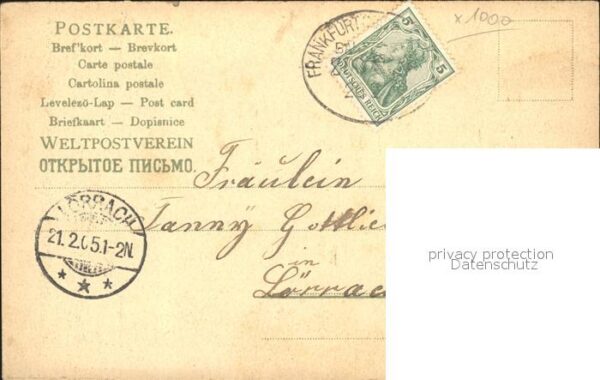 POSTKARTE.
Bref'kort — Brevkort
Carte postale
Cartolina postale
Levelező-Lap — Post card
Briefkaart — Dopisnice
WELTPOSTVEREIN
ОТКРЫТОЕ ПИСЬМО.
FRANKFURT
5
5
DEUTSCHES REICH
x 1000
LÖRRACH
21.2.05.1-2N.
Fräulein
Fanny Gottlie
in
Lörrac
privacy protection
Datenschutz